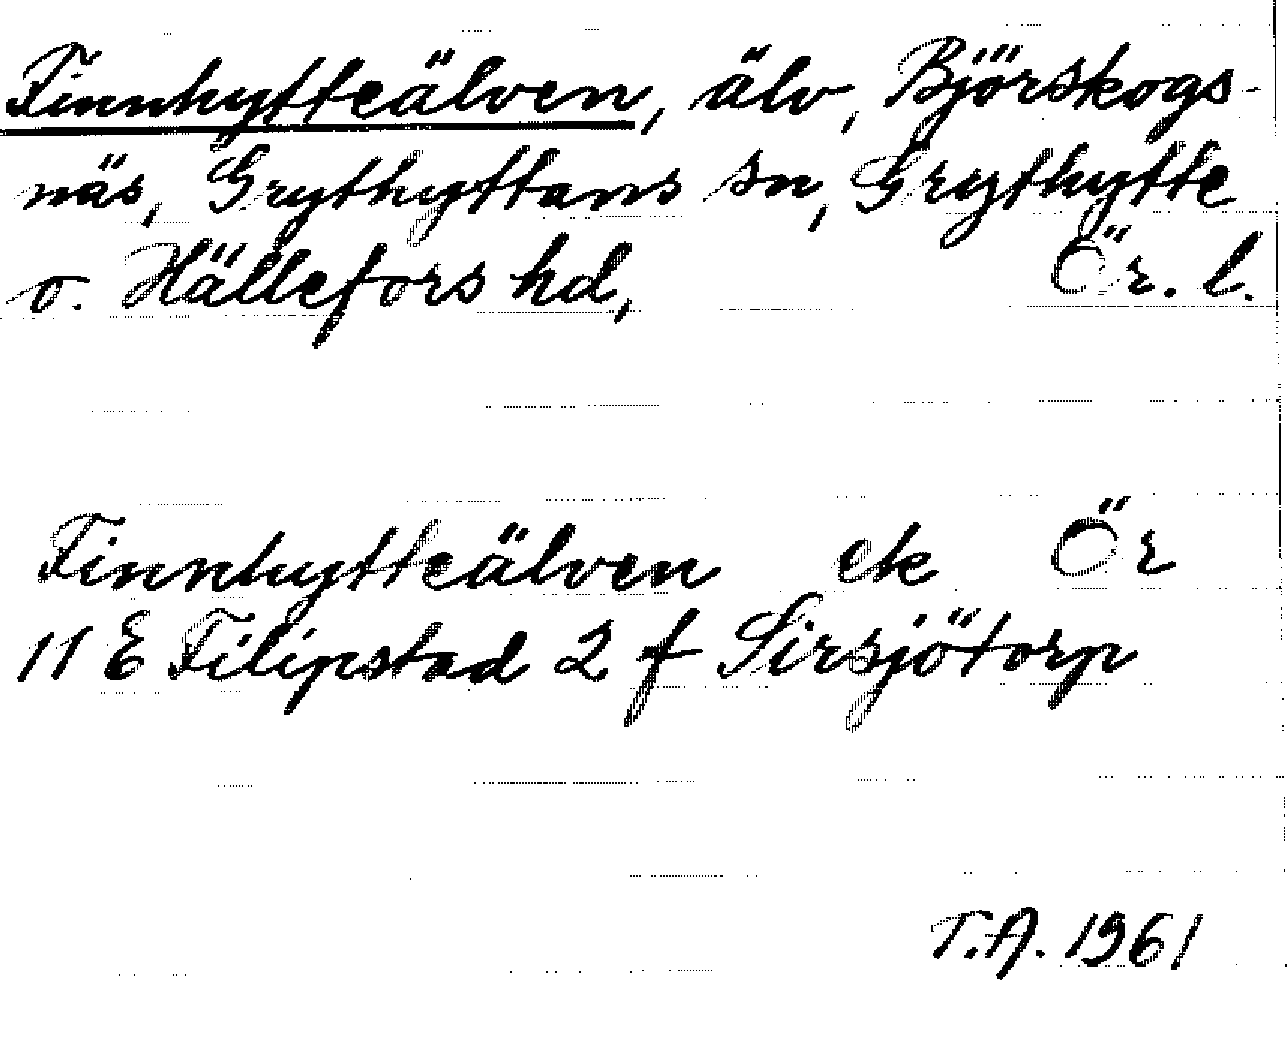 Finnhytteälven, älv, Björskogs-
näs, Grythyttans sn, Grythytte
o. Hällefors hd, Ör. l.
Finnhytteälven ek Ör
11 E Filipstad 2 f Sirsjötorp
T.A. 1961